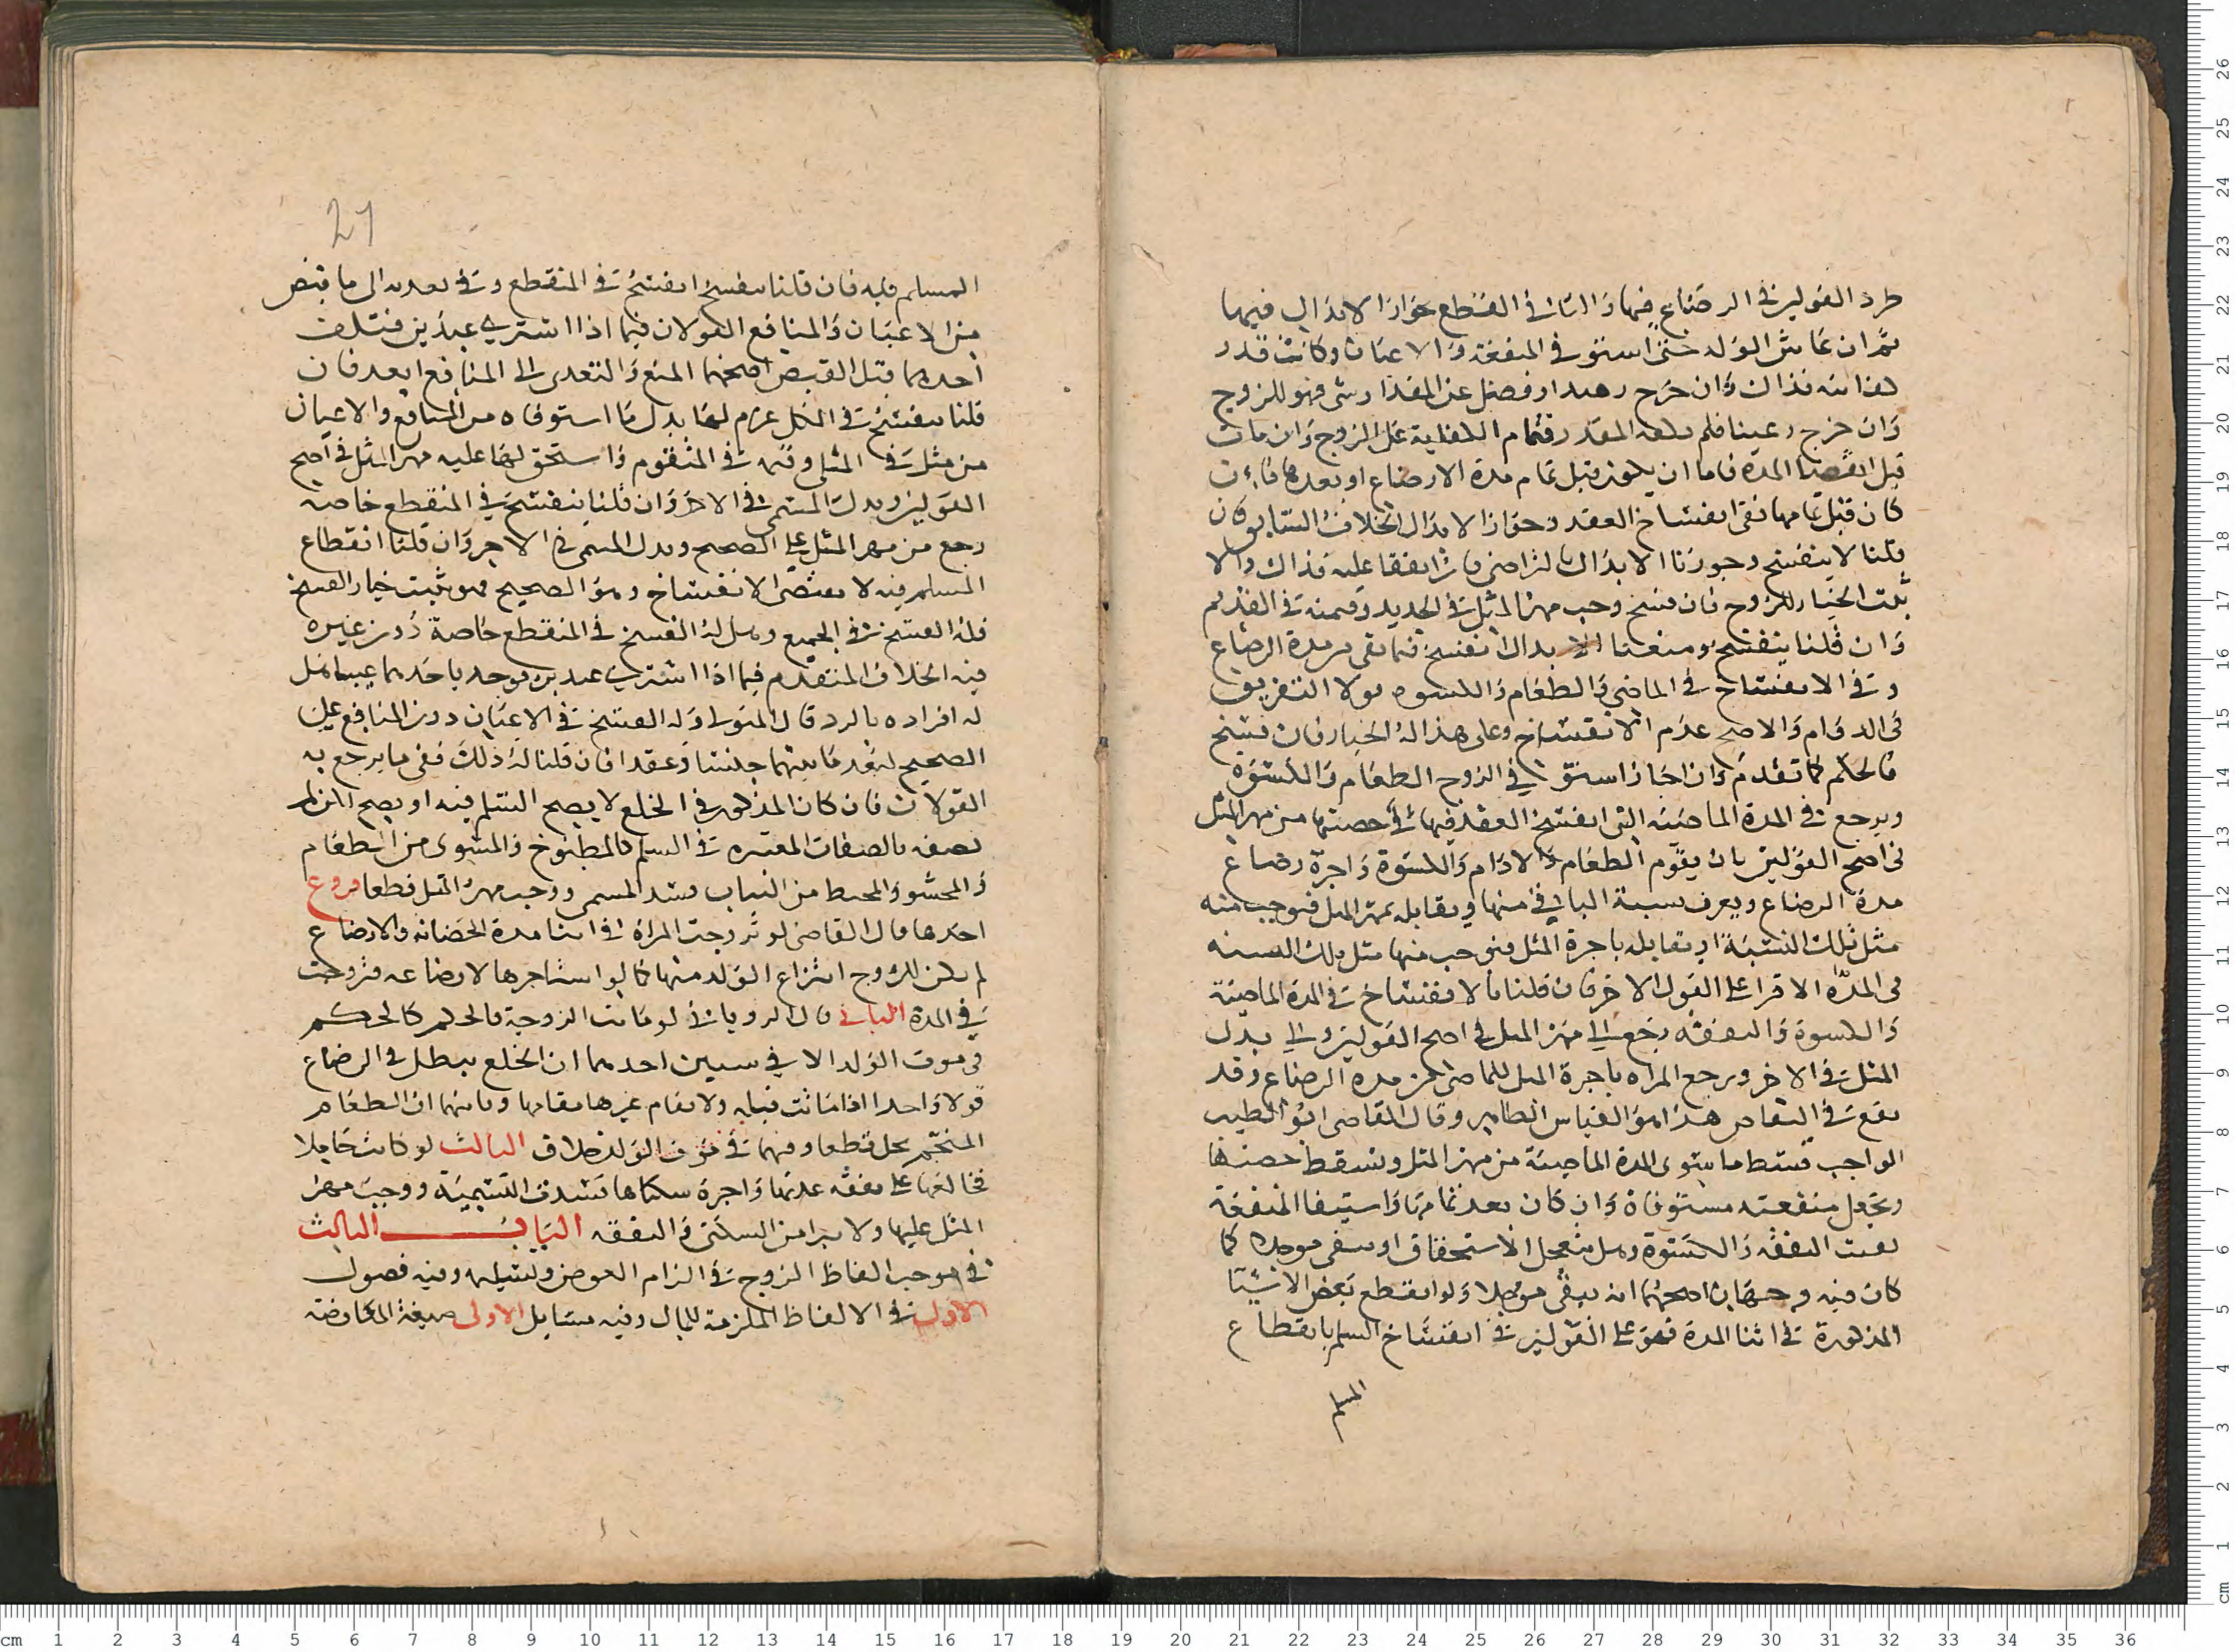 طرد القولين في الرضاع فيها والثاني القطع بجواز الابدال فيها
ثم ان عاش الولد حتى استوفى المنفعة والاعيان وكانت قدر
كفايته فذاك وان خرج زهيدا وفضل عن المقدار شي فهو للزوج
وان خرج رغيبا فلم يكفه المقدر فتمام الكفاية على الزوج وان مات
قبل انقضا المدة فاما ان يكون قبل تمام مدة الارضاع او بعدها فان
كان قبل تمامها ففي انفساخ العقد وجواز الابدال الخلاف السابق فان
قلنا لا ينفسخ وجوزنا الابدال بالتراضي فان اتفقا عليه فذاك والا
ثبت الخيار للزوج فان فسخ وجب مهر المثل في الجديد وقيمته في القديم
وان قلنا ينفسخ ومنعنا الابدال انفسخ فيما بقي من مدة الرضاع
وفي الانفساخ في الماضي والطعام والكسوة قولا التفريق
في الدوام والاصح عدم الانفساخ وعلى هذا له الخيار فان فسخ
فالحكم كما تقدم وان اجاز استوفى الزوج الطعام والكسوة
ويرجع في المدة الماضية التي انفسخ العقد فيها الى حصتها من مهر المثل
في اصح القولين بان يقوم الطعام والادام والكسوة واجرة رضاع
مدة الرضاع ويعرف نسبة الباقي منها ويقابله بمهر المثل فنوجب منه
مثل تلك النسبة او يقابله باجرة المثل فنوجب منها مثل تلك النسبة
في المدة الاقرا على القول الاخر فان قلنا بالانفساخ في المدة الماضية
والكسوة والنفقة رجع الى مهر المثل في اصح القولين والى بدل
المثل في الاخر ويرجع المراة باجرة المثل للماضي من مدة الرضاع وقد
يقع في التقاص هذا هو القياس الظاهر وقال القاضي ابو الطيب
الواجب قسط ما سوى المدة الماضية من مهر المثل ويسقط حصتها
وتجعل منفعته مستوفاة وان كان بعد تمامها واستيفا المنفعة
بقيت النفقة والكسوة وهل يتعجل الاستحقاق او يبقى موجلا كما
كان فيه وجهان اصحهما انه يبقى موجلا ولو انقطع بعض الاشيا
المذكورة في اثنا المدة فهو على القولين في انفساخ السلم بانقطاع
المسلم
27
المسلم فيه فان قلنا ينفسخ انفسخ في المنقطع وفي تعديه الى ما قبض
من الاعيان والمنافع القولان فيما اذا اشترى عبدين فتلف
احدهما قبل القبض اصحهما المنع والتعدي الى المنافع ابعد فان
قلنا ينفسخ في الكل غرم لها بدل ما استوفاه من المنافع والاعيان
من مثل في المثلي وقيمة في المتقوم واستحق لها عليه مهر المثل في اصح
القولين وبدل المسمى في الاخر وان قلنا ينفسخ في المنقطع خاصة
رجع من مهر المثل على الصحيح وبدل المسمى في الاخر وان قلنا انقطاع
المسلم فيه لا يقتضي الانفساخ وهو الصحيح فهو يثبت خيار الفسخ
فله الفسخ في الجميع وهل له الفسخ في المنقطع خاصة دون غيره
فيه الخلاف المتقدم فيما اذا اشترى عبدين فوجد باحدهما عيبا هل
له افراده بالرد قال المتولي وله الفسخ في الاعيان دون المنافع على
الصحيح لبعد ما بينهما جنسا وعقدا فان قلنا له ذلك ففي ما يرجع به
القولان فان كان المذكور في الخلع لا يصح السلم فيه او يصح لكن لم
يصفه بالصفات المعتبرة في السلم كالمطبوخ والمشوي من الطعام
والمحشو والمخيط من الثياب فسد المسمى ووجب مهر المثل قطعا فروع
احدها قال القاضي لو تزوجت المراة في اثنا مدة الحضانة والارضاع
لم يكن للزوج انتزاع الولد منها كما لو استاجرها لارضاعه فتزوجت
في المدة الثاني قال الروياني لو ماتت الزوجة فالحكم كالحكم
في موت الولد الا في سيين احدهما ان الخلع يبطل في الرضاع
قولا واحدا اذا ماتت قبله ولا يقام غيرها مقامها وثانيهما ان الطعام
المنجم يحل قطعا وفيهما في موت الولد خلاف الثالث لو كانت حاملا
فخالعها على نفقة عدتها واجرة سكناها فسدت التسمية ووجب مهر
المثل عليها ولا يبرا من السكنى والنفقة الباب الثالث
في موجب الفاظ الزوج في الزام العوض وتسليمه وفيه فصول
الاول في الالفاظ الملزمة للمال وفيه مسايل الاولى صيغة المعاوضة